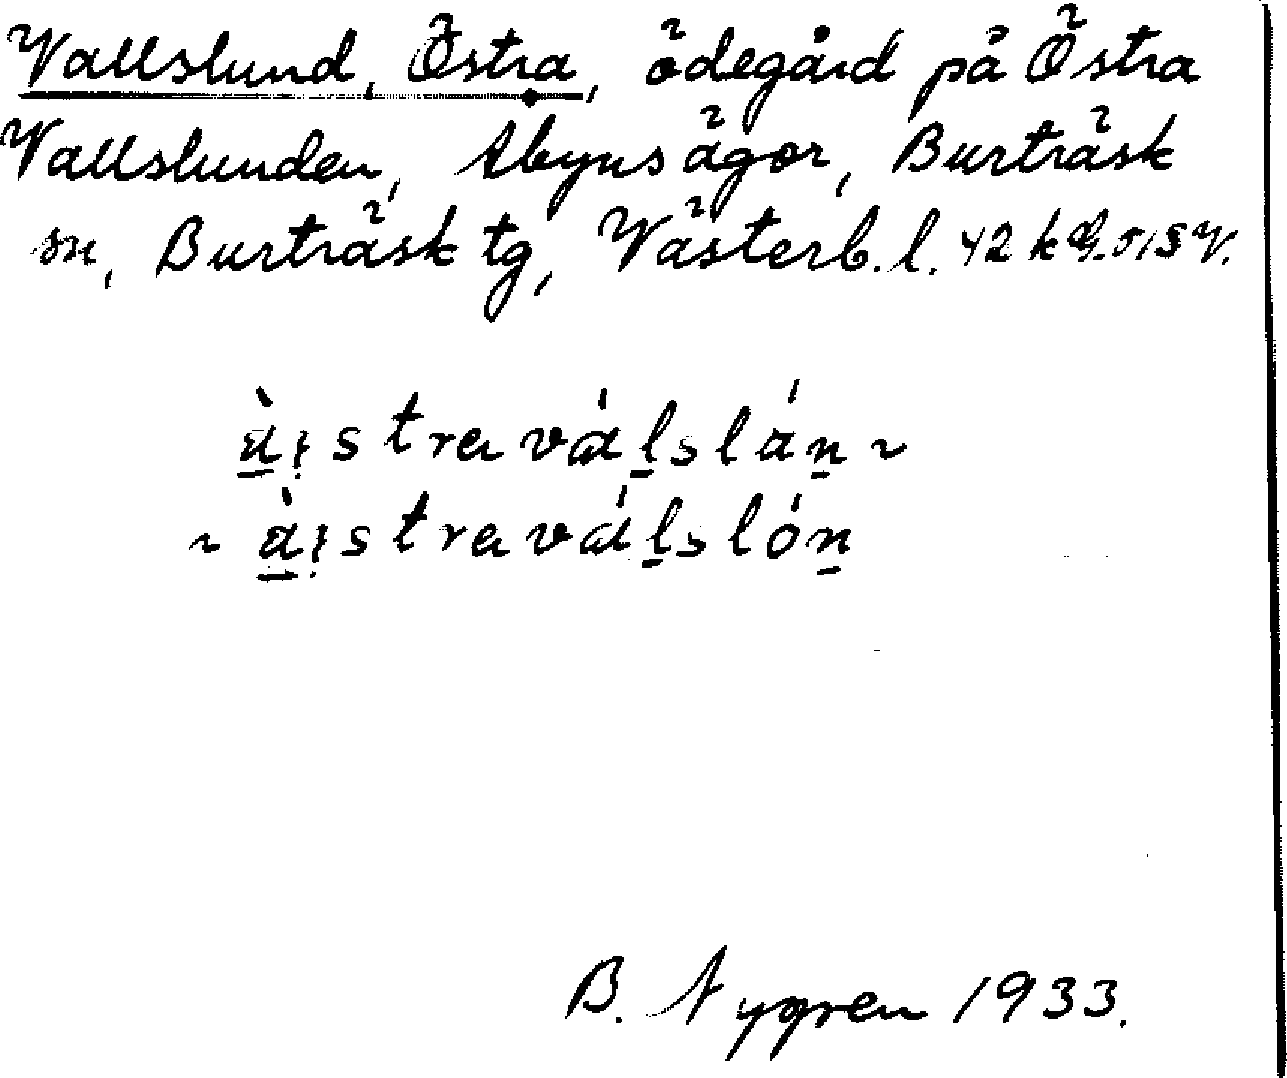 Vallslund, Östra, ödegård på Östra
Vallslunden, Åbyns ägor, Burträsk
sn, Burträsk tg, Västerb. l. 42 k
àı̣straválslán ~
~ àı̣straválslón
B. Nygren 1933.